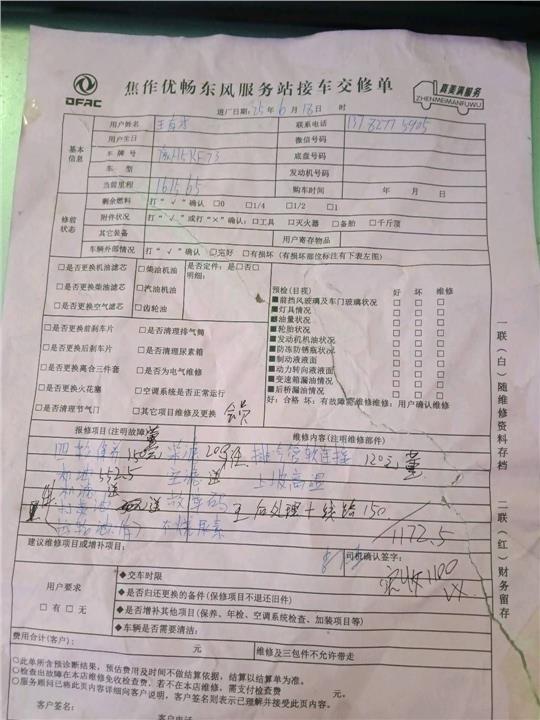 DFAC
焦作优畅东风服务站接车交修单
真美满服务
ZHENMEIMANFUWU
进厂日期: 25 年 6 月 18 日 时
基本信息
用户姓名 联系电话
用户生日 微信号码
车牌号 底盘号码
车型 发动机号码
当前里程 161565 购车时间 年 月 日
修前状态
剩余燃料 打"√"确认 □0 □1/4 □1/2 □1
附件状况 打"√"或打"×"确认: □工具 □灭火器 □备胎 □千斤顶
其它装备 用户寄存物品
车辆外部情况 打"√"确认 □完好 □有损坏(有损坏部位标注有下表左图)
□是否更换机油滤芯 □柴油机油 是否定件: 是□否□
明细:
□是否更换柴油滤芯 □汽油机油
□是否更换空气滤芯 □齿轮油
□是否更换前刹车片 □是否清理排气筒
□是否更换后刹车片 □是否清理尿素箱
□是否更换离合三件套 □是否为电气维修
□是否更换火花塞 □空调系统是否正常运行
□是否清理节气门 □其它项目维修及更换 会员
预检(目视) 好 坏 维修
■前挡风玻璃及车门玻璃状况 □ □ □
■灯具情况 □ □ □
■油量状况 □ □ □
■轮胎状况 □ □ □
■发动机机油状况 □ □ □
■防冻防锈瓶状况 □ □ □
■制动液液面 □ □ □
■动力转向液液面 □ □ □
■变速箱漏油情况 □ □ □
■后桥漏油情况 □ □ □
好: 合格 坏: 有故障需维修维修: 用户确认维修
报修项目(注明故障) 维修内容(注明维修部件)
150元 排气管软连接 120元
552.5 送 上坡高温
送 后处理+线路 150
不烧尿素 1172.5
建议维修项目或增补项目: 司机确认签字:
实收1100
用户要求
□有 □无
◆交车时限
◆是否归还更换的备件(保修项目不退还旧件)
◆是否增补其他项目(保养、年检、空调系统检查、加装项目等)
◆车辆是否需要清洁:
费用合计(客户): 元 维修及三包件不允许带走
○此单所含预诊断结果,预估费用及时间不做结算依据,结算以结算单为准。
○检查出故障在本店维修免收检查费,若不在本店维修,需支付检查费 元。
○服务顾问已将此页内容详细向客户说明,客户签名则表示已理解并接受此页内容。
客户签名: 客户电话
一联(白)随维修资料存档
二联(红)财务留存